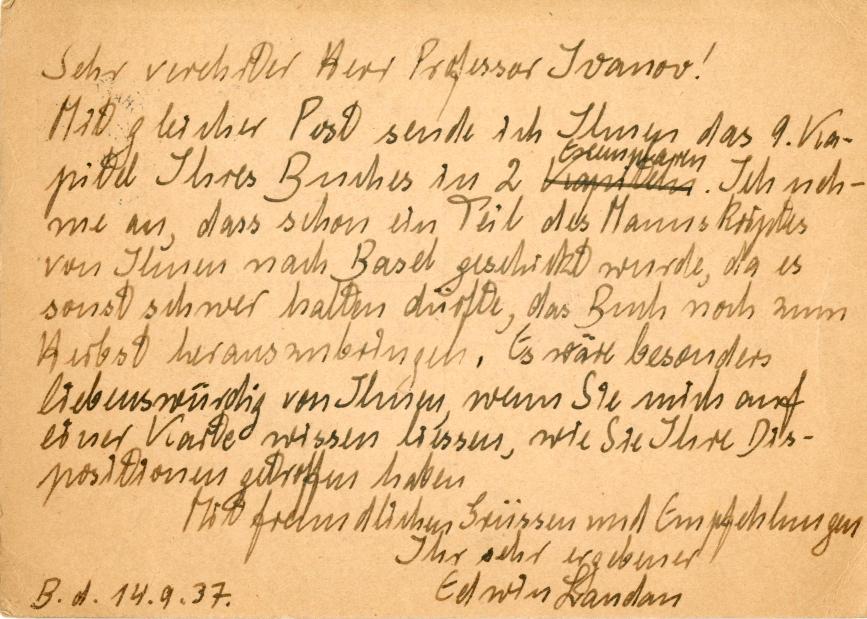 Sehr verehrter Herr Professor Ivanov!
Mit gleicher Post sende ich Ihnen das 9. Ka-
pitel Ihres Buches in 2 Kapiteln Exemplaren. Ich neh-
me an, dass schon ein Teil des Manuskriptes
von Ihnen nach Basel geschickt wurde, da es
sonst schwer halten dürfte, das Buch noch zum
Herbst herauszubringen. Es wäre besonders
liebenswürdig von Ihnen, wenn Sie mich auf
einer Karte wissen liessen, wie Sie Ihre Dis-
positionen getroffen haben
Mit freundlichen Grüssen und Empfehlungen
Ihr sehr ergebener
Edwin Landau
B. d. 14.9.37.